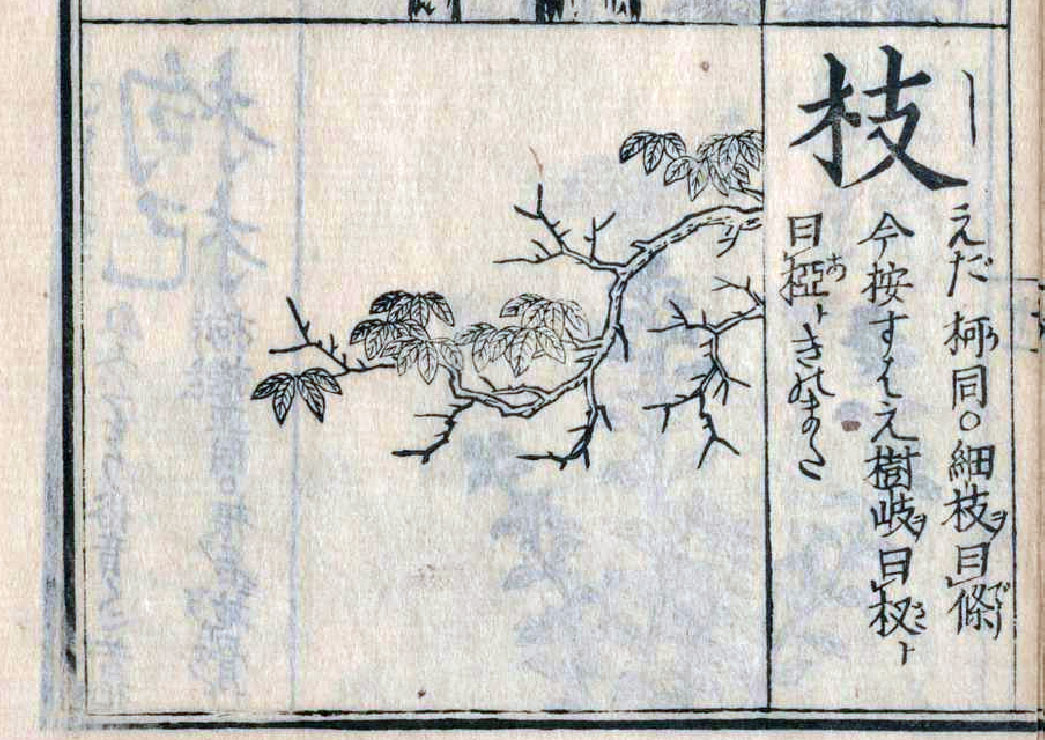 枝
えだ 柯同○細枝ヲ曰條
今按すはえ樹岐ヲ曰杈ト
曰椏ト きのまた